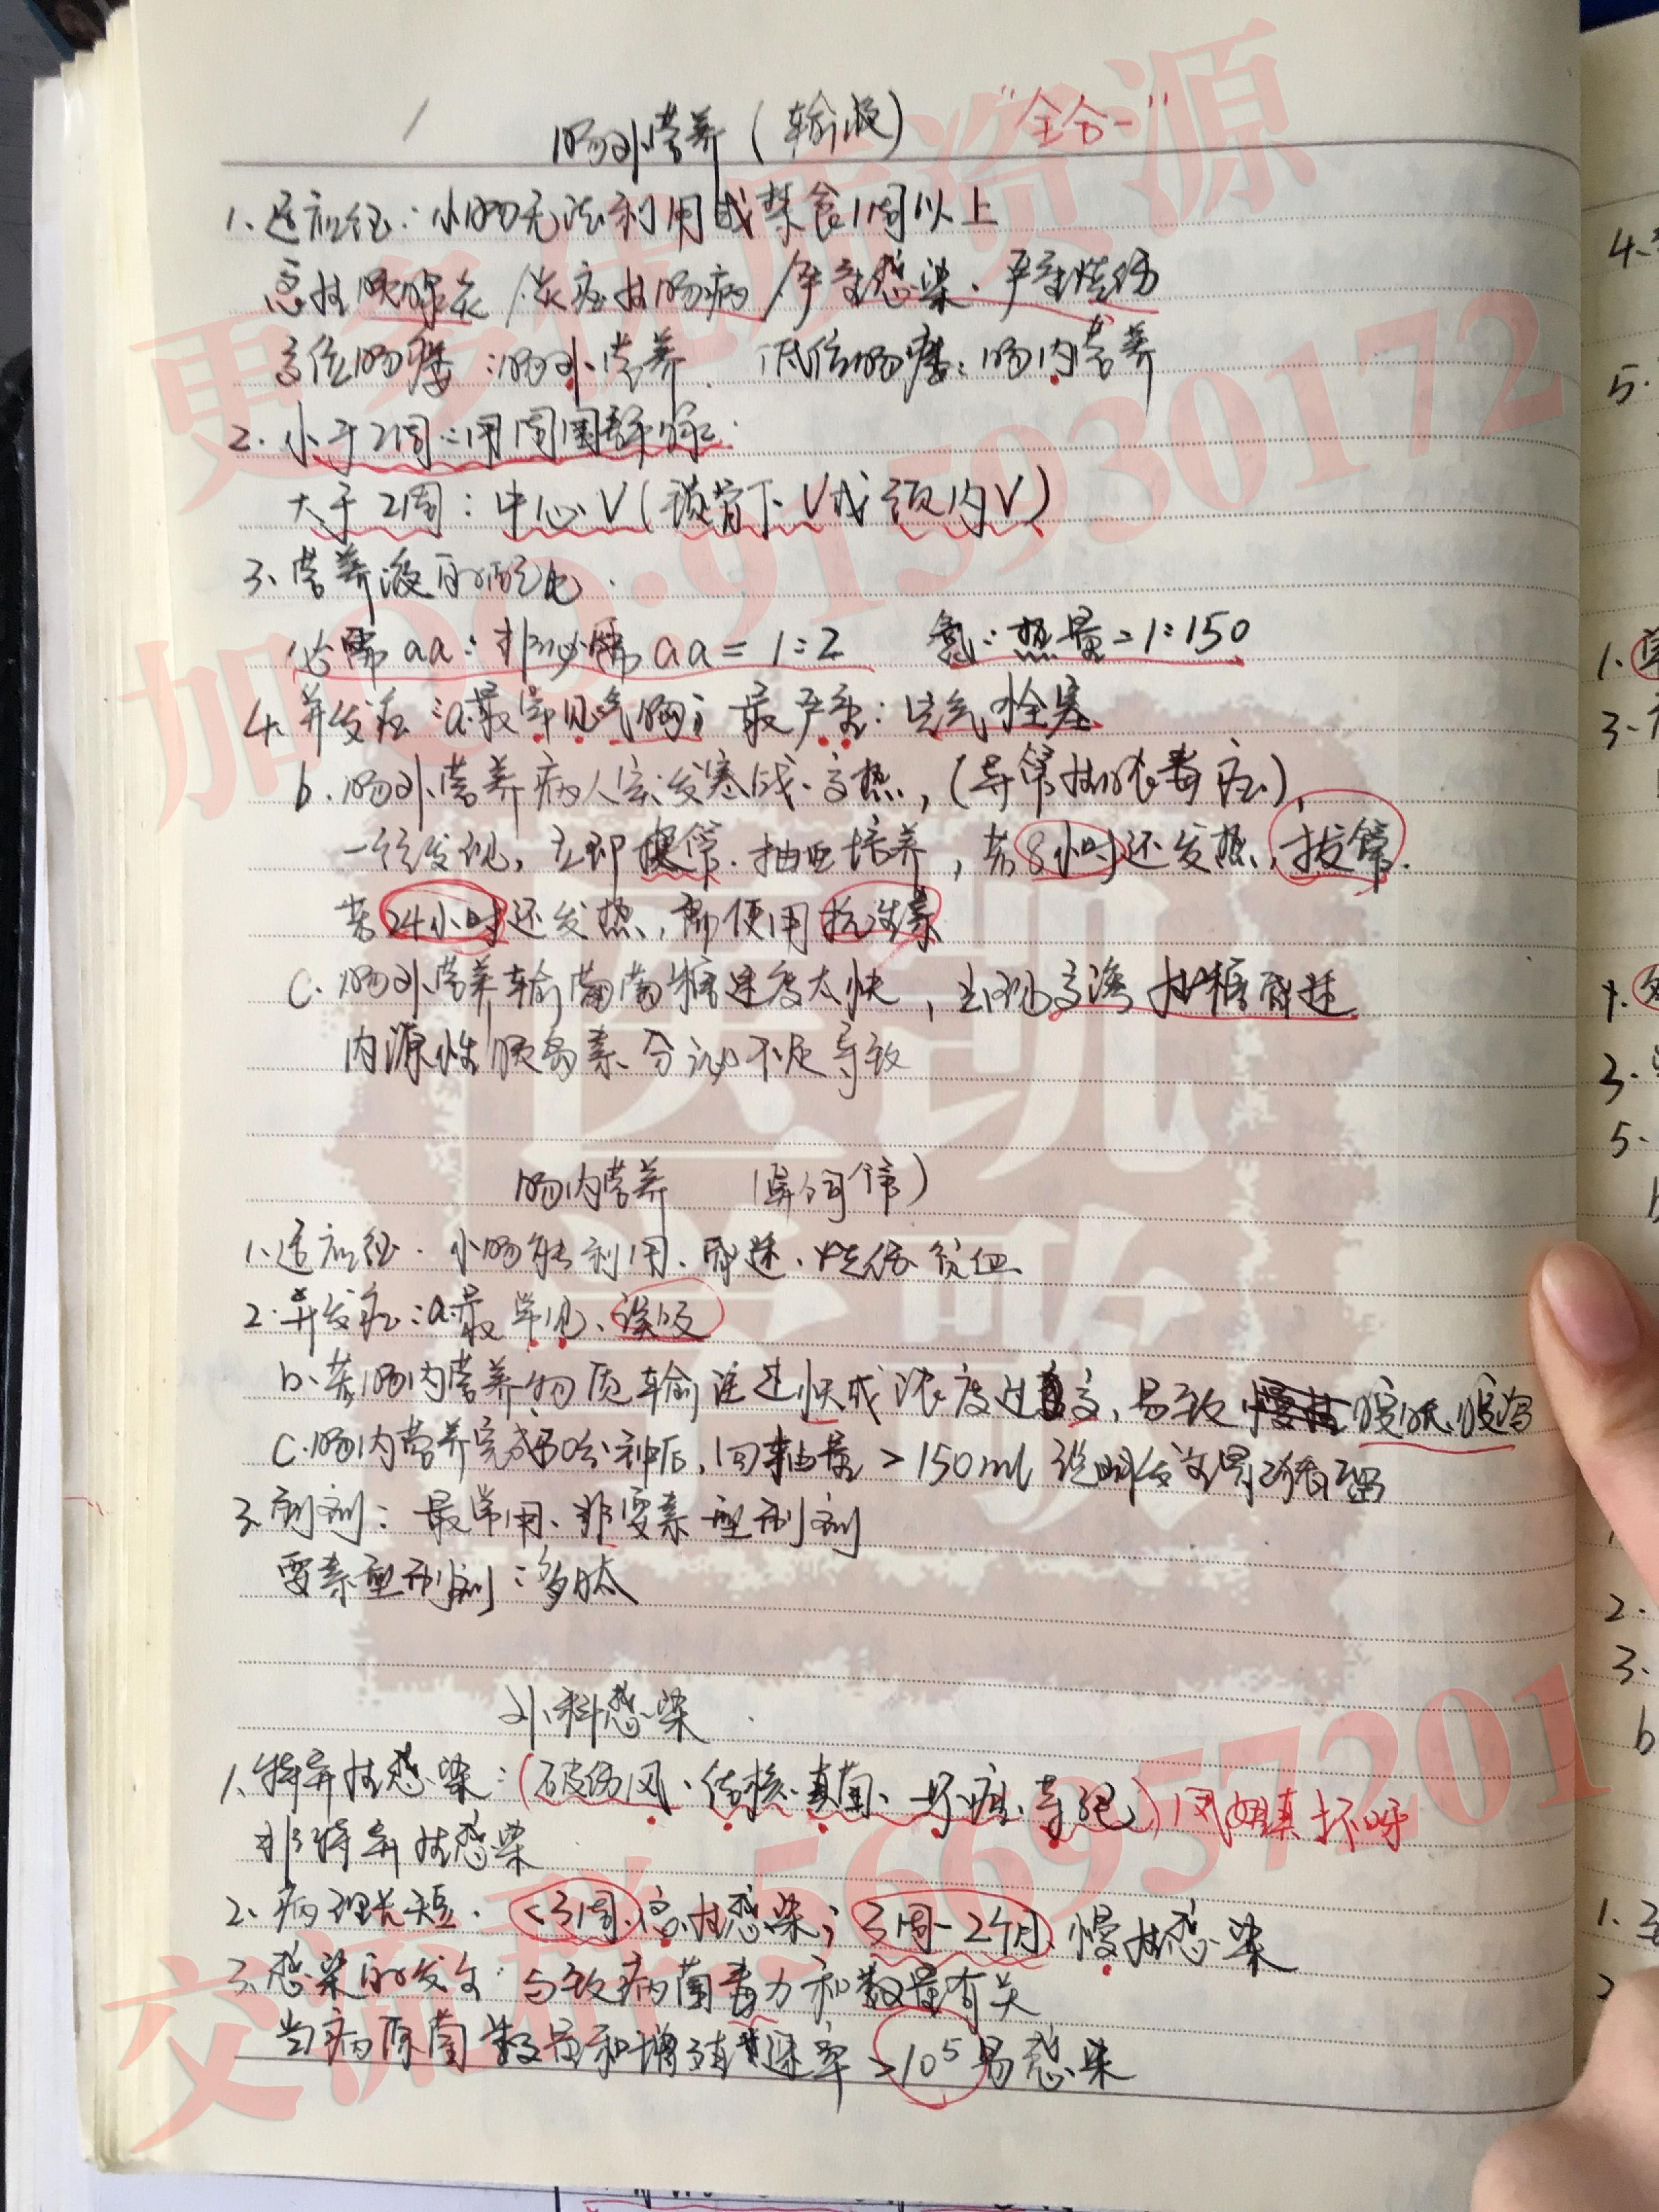 肠外营养（输液） “全合一”
1、适应征：小肠无法利用或禁食1周以上
急性胰腺炎/炎症性肠病/严重感染、严重烧伤
高位肠瘘：肠外营养. 低位肠瘘：肠内营养
2. 小于2周：用周围静脉.
大于2周：中心V（锁骨下V或颈内V）
3、营养液的配比.
必需aa：非必需aa=1:2 氮：热量=1:150
4、并发症：a.最常见气胸；最严重：空气栓塞
b.肠外营养病人突发寒战、高热，（导管性脓毒症），
一经发现，立即换管.抽血培养，若8小时还发热，拔管.
若24小时还发热，即使用抗生素
C.肠外营养输葡萄糖速度太快，出现高渗性糖昏迷
内源性胰岛素分泌不足导致
肠内营养 （鼻饲管）
1、适应征.小肠能利用、昏迷、烧伤贫血
2.并发症：a.最常见、误吸
b.若肠内营养物质输注过快或浓度过高，易致腹胀、腹泻
C.肠内营养完成30分钟后，回抽量>150ml 说明发生胃潴留
3、制剂：最常用、非要素型制剂
要素型制剂：多肽
外科感染.
1、特异性感染：（破伤风、结核、真菌、坏疽、等.）（风姐真坏呀
非特异性感染
2、病程长短. <3周、急性感染；3周-2个月、慢性感染
3、感染的发生：与致病菌毒力和数量有关
当病原菌数量和增殖速率>10⁵易感染
更多优质资源
加QQ:915930172
医凯
学歌
交流群:566957201